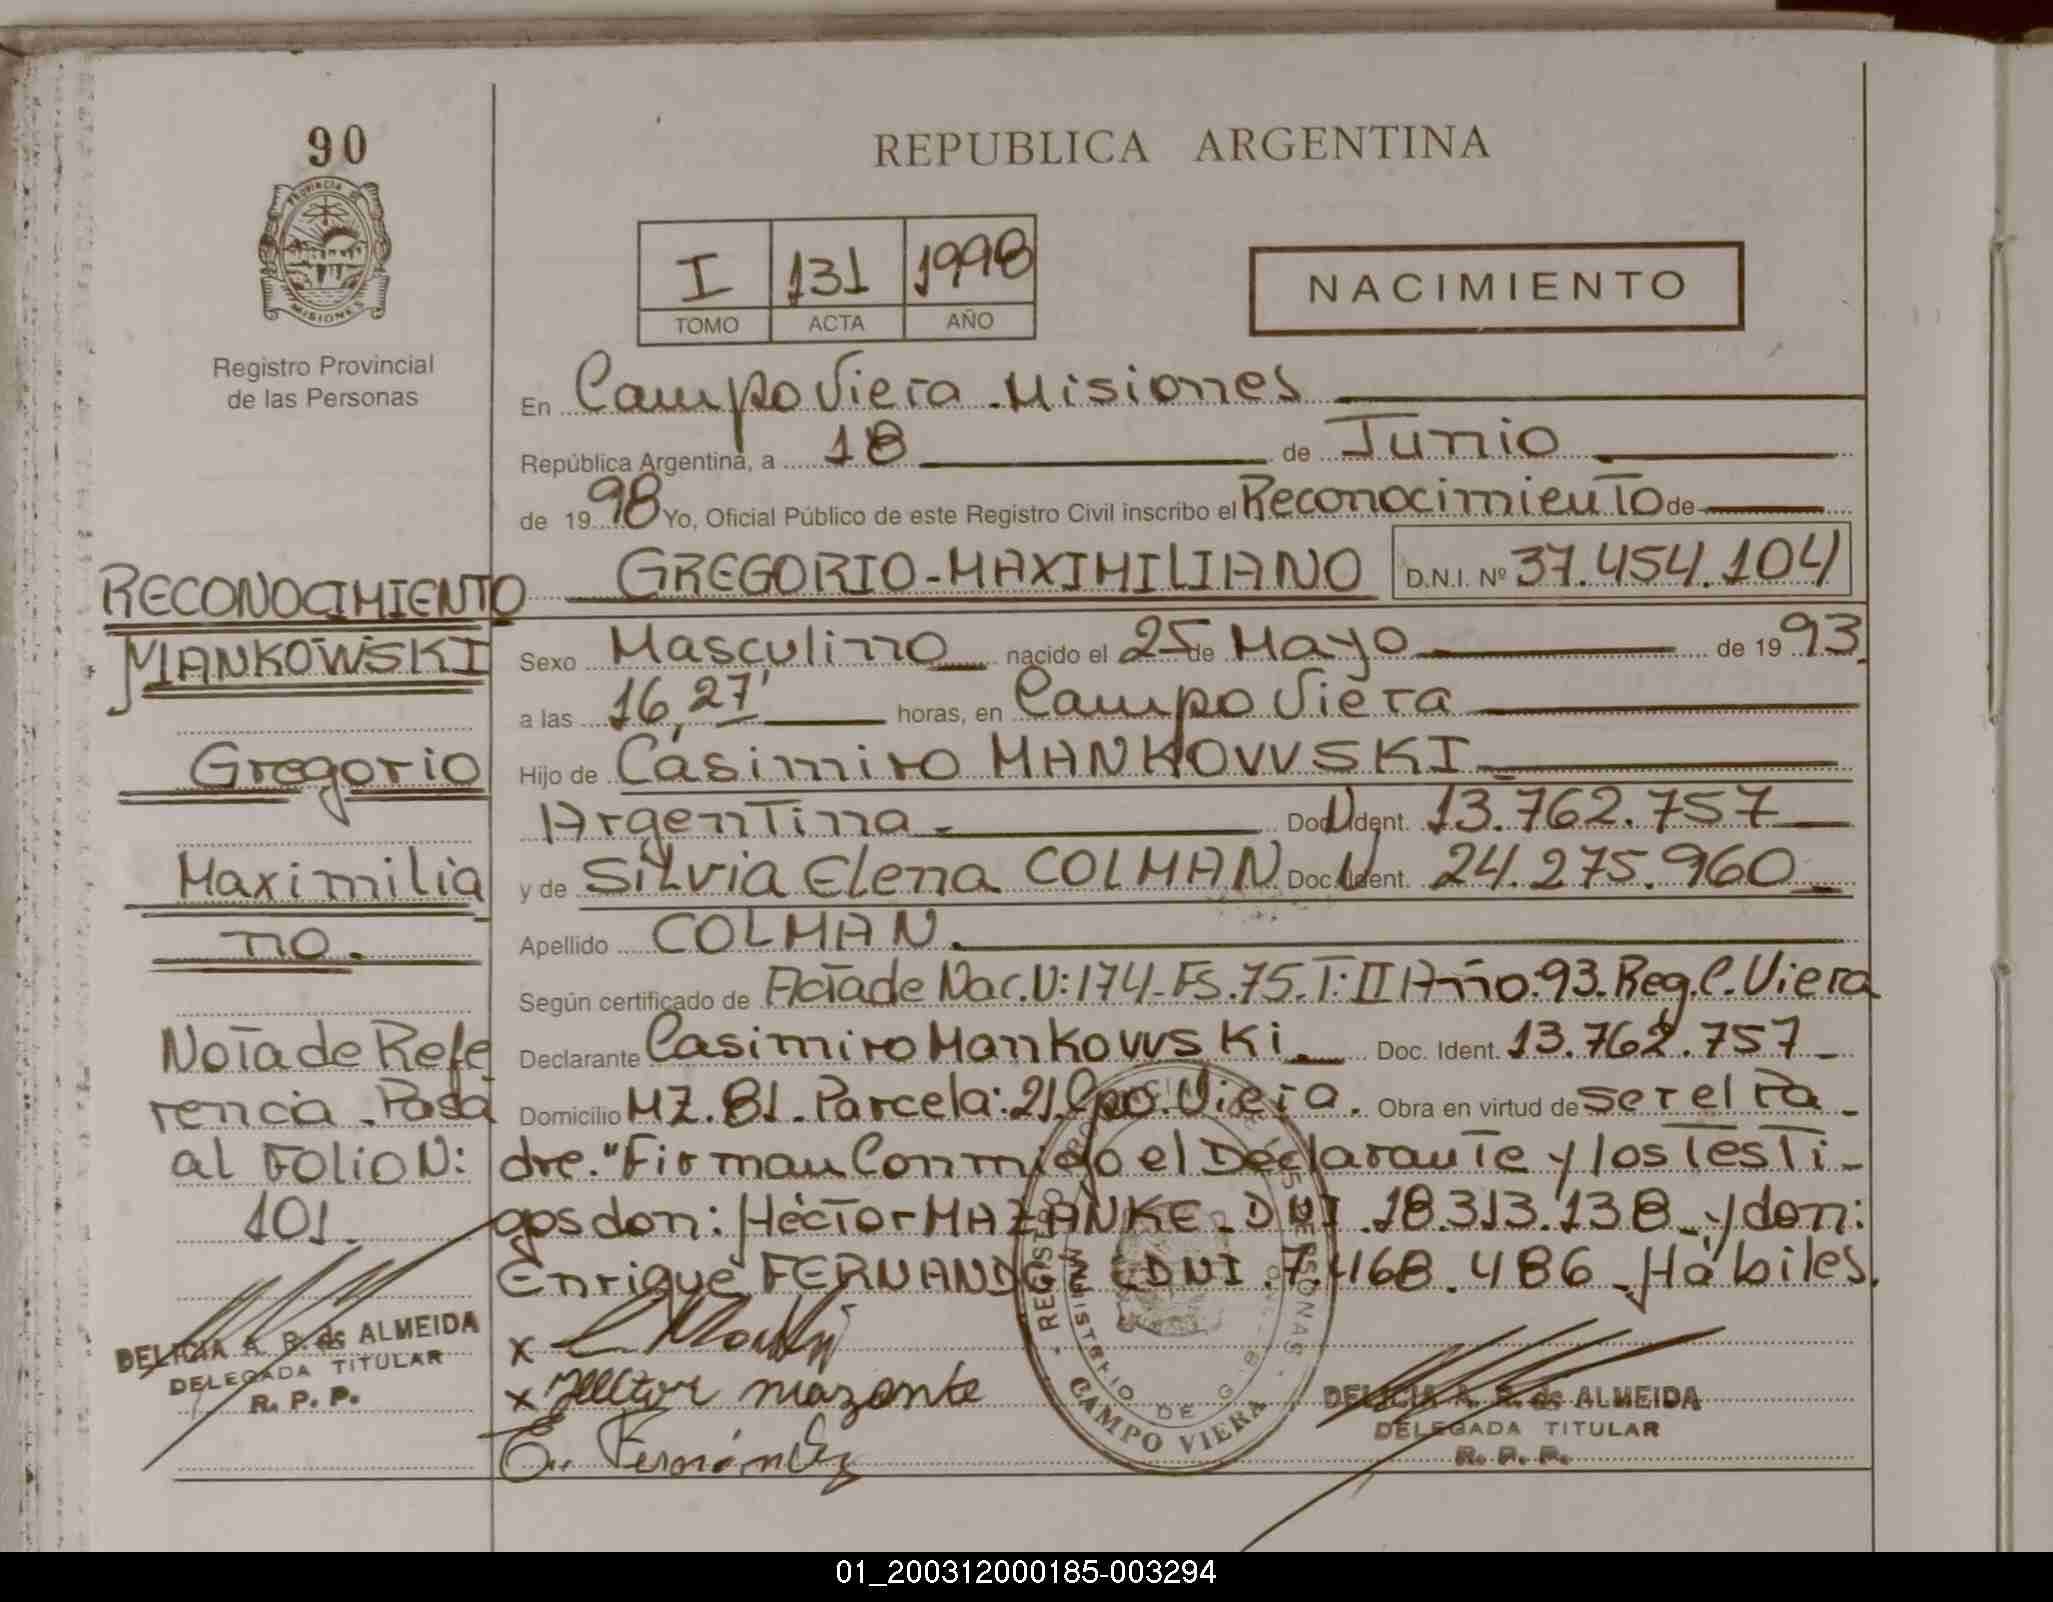 90
PROVINCIA DE
MISIONES
Registro Provincial
de las Personas
REPUBLICA ARGENTINA
I 131 1998
TOMO ACTA AÑO
NACIMIENTO
En Campo Viera Misiones
República Argentina, a 18 de Junio
de 1998 Yo, Oficial Público de este Registro Civil inscribo el Reconocimiento de
GREGORIO-MAXIMILIANO D.N.I. Nº 37.454.104
Sexo Masculino nacido el 25 de Mayo de 1993
a las 16,27' horas, en Campo Viera
Hijo de Casimiro MANKOWSKI
Argentina Doc. Ident. 13.762.757
y de Silvia Elena COLMAN Doc. Ident. 24.275.960
Apellido COLMAN.
Según certificado de Acta de Nac. N: 174-Fs.75.T:II Año:93.Reg.C.Viera
Declarante Casimiro Mankowski Doc. Ident. 13.762.757
Domicilio MZ.81.Parcela:21.Cpo.Viera. Obra en virtud de ser el Pa-
dre."Firman Conmigo el Declarante y los Testi-
gos don: Héctor MAZANKE-DNI.18.313.138-y don:
Enrique FERNANDEZ DNI.7.468.486-Hábiles.
x
x Hector mazanke
E. Fernández
RECONOCIMIENTO
MANKOWSKI
Gregorio
Maximilia
no.
Nota de Refe
rencia. Pasa
al FOLIO N:
101.
DELICIA A. B. de ALMEIDA
DELEGADA TITULAR
R. P. P.
REGISTRO PROVINCIAL DE LAS PERSONAS
MINISTERIO DE GOB.
CAMPO VIERA
DELICIA A. B. de ALMEIDA
DELEGADA TITULAR
R. P. P.
01_200312000185-003294